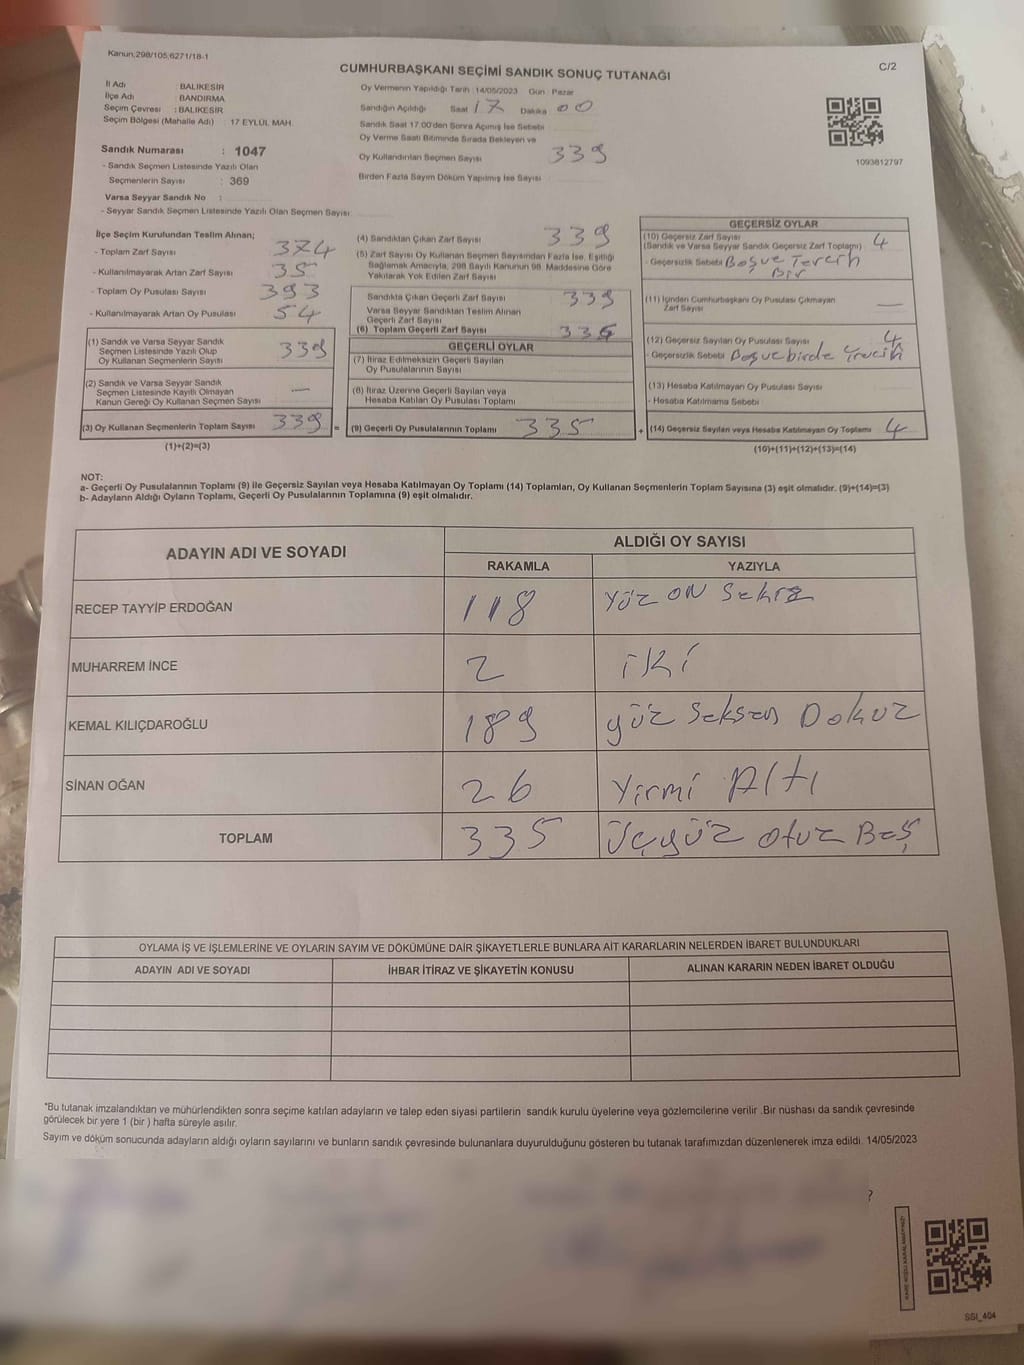 Kanun;298/105,6271/18-1
CUMHURBAŞKANI SEÇİMİ SANDIK SONUÇ TUTANAĞI
C/2
İl Adı : BALIKESİR
İlçe Adı : BANDIRMA
Seçim Çevresi : BALIKESİR
Seçim Bölgesi (Mahalle Adı) : 17 EYLÜL MAH.
Sandık Numarası : 1047
- Sandık Seçmen Listesinde Yazılı Olan
Seçmenlerin Sayısı : 369
Varsa Seyyar Sandık No :
- Seyyar Sandık Seçmen Listesinde Yazılı Olan Seçmen Sayısı
Oy Vermenin Yapıldığı Tarih : 14/05/2023 Gün : Pazar
Sandığın Açıldığı Saat 17 Dakika 00
Sandık Saat 17:00'den Sonra Açılmış İse Sebebi
Oy Verme Saati Bitiminde Sırada Bekleyen ve
Oy Kullandırılan Seçmen Sayısı 339
Birden Fazla Sayım Döküm Yapılmış İse Sayısı
1093812797
İlçe Seçim Kurulundan Teslim Alınan;
- Toplam Zarf Sayısı 374
- Kullanılmayarak Artan Zarf Sayısı 35
- Toplam Oy Pusulası Sayısı 393
- Kullanılmayarak Artan Oy Pusulası 54
(1) Sandık ve Varsa Seyyar Sandık
Seçmen Listesinde Yazılı Olup
Oy Kullanan Seçmenlerin Sayısı 339
(2) Sandık ve Varsa Seyyar Sandık
Seçmen Listesinde Kayıtlı Olmayan
Kanun Gereği Oy Kullanan Seçmen Sayısı —
(3) Oy Kullanan Seçmenlerin Toplam Sayısı 339 =
(1)+(2)=(3)
(4) Sandıktan Çıkan Zarf Sayısı 339
(5) Zarf Sayısı Oy Kullanan Seçmen Sayısından Fazla İse, Eşitliği
Sağlamak Amacıyla, 298 Sayılı Kanunun 98. Maddesine Göre
Yakılarak Yok Edilen Zarf Sayısı
Sandıkta Çıkan Geçerli Zarf Sayısı 339
Varsa Seyyar Sandıktan Teslim Alınan
Geçerli Zarf Sayısı
(6) Toplam Geçerli Zarf Sayısı
GEÇERLİ OYLAR
(7) İtiraz Edilmeksizin Geçerli Sayılan
Oy Pusulalarının Sayısı
(8) İtiraz Üzerine Geçerli Sayılan veya
Hesaba Katılan Oy Pusulası Toplamı
(9) Geçerli Oy Pusulalarının Toplamı 335 +
GEÇERSİZ OYLAR
(10) Geçersiz Zarf Sayısı
(Sandık ve Varsa Seyyar Sandık Geçersiz Zarf Toplamı) 4
- Geçersizlik Sebebi Boş ve Tercih
Bir
(11) İçinden Cumhurbaşkanı Oy Pusulası Çıkmayan
Zarf Sayısı —
(12) Geçersiz Sayılan Oy Pusulası Sayısı 4
- Geçersizlik Sebebi Boş ve birde
(13) Hesaba Katılmayan Oy Pusulası Sayısı
- Hesaba Katılmama Sebebi
(14) Geçersiz Sayılan veya Hesaba Katılmayan Oy Toplamı 4
(10)+(11)+(12)+(13)=(14)
NOT:
a- Geçerli Oy Pusulalarının Toplamı (9) ile Geçersiz Sayılan veya Hesaba Katılmayan Oy Toplamı (14) Toplamları, Oy Kullanan Seçmenlerin Toplam Sayısına (3) eşit olmalıdır. (9)+(14)=(3)
b- Adayların Aldığı Oyların Toplamı, Geçerli Oy Pusulalarının Toplamına (9) eşit olmalıdır.
ADAYIN ADI VE SOYADI ALDIĞI OY SAYISI
RAKAMLA YAZIYLA
RECEP TAYYİP ERDOĞAN 118 Yüz ON Sekiz
MUHARREM İNCE 2 iki
KEMAL KILIÇDAROĞLU 189 yüz Seksen Dokuz
SİNAN OĞAN 26 Yirmi Altı
TOPLAM 335 Üçyüz otuz Beş
OYLAMA İŞ VE İŞLEMLERİNE VE OYLARIN SAYIM VE DÖKÜMÜNE DAİR ŞİKAYETLERLE BUNLARA AİT KARARLARIN NELERDEN İBARET BULUNDUKLARI
ADAYIN ADI VE SOYADI İHBAR İTİRAZ VE ŞİKAYETİN KONUSU ALINAN KARARIN NEDEN İBARET OLDUĞU
*Bu tutanak imzalandıktan ve mühürlendikten sonra seçime katılan adayların ve talep eden siyasi partilerin sandık kurulu üyelerine veya gözlemcilerine verilir .Bir nüshası da sandık çevresinde
görülecek bir yere 1 (bir ) hafta süreyle asılır.
Sayım ve döküm sonucunda adayların aldığı oyların sayılarını ve bunların sandık çevresinde bulunanlara duyurulduğunu gösteren bu tutanak tarafımızdan düzenlenerek imza edildi. 14/05/2023
?
SSI_404